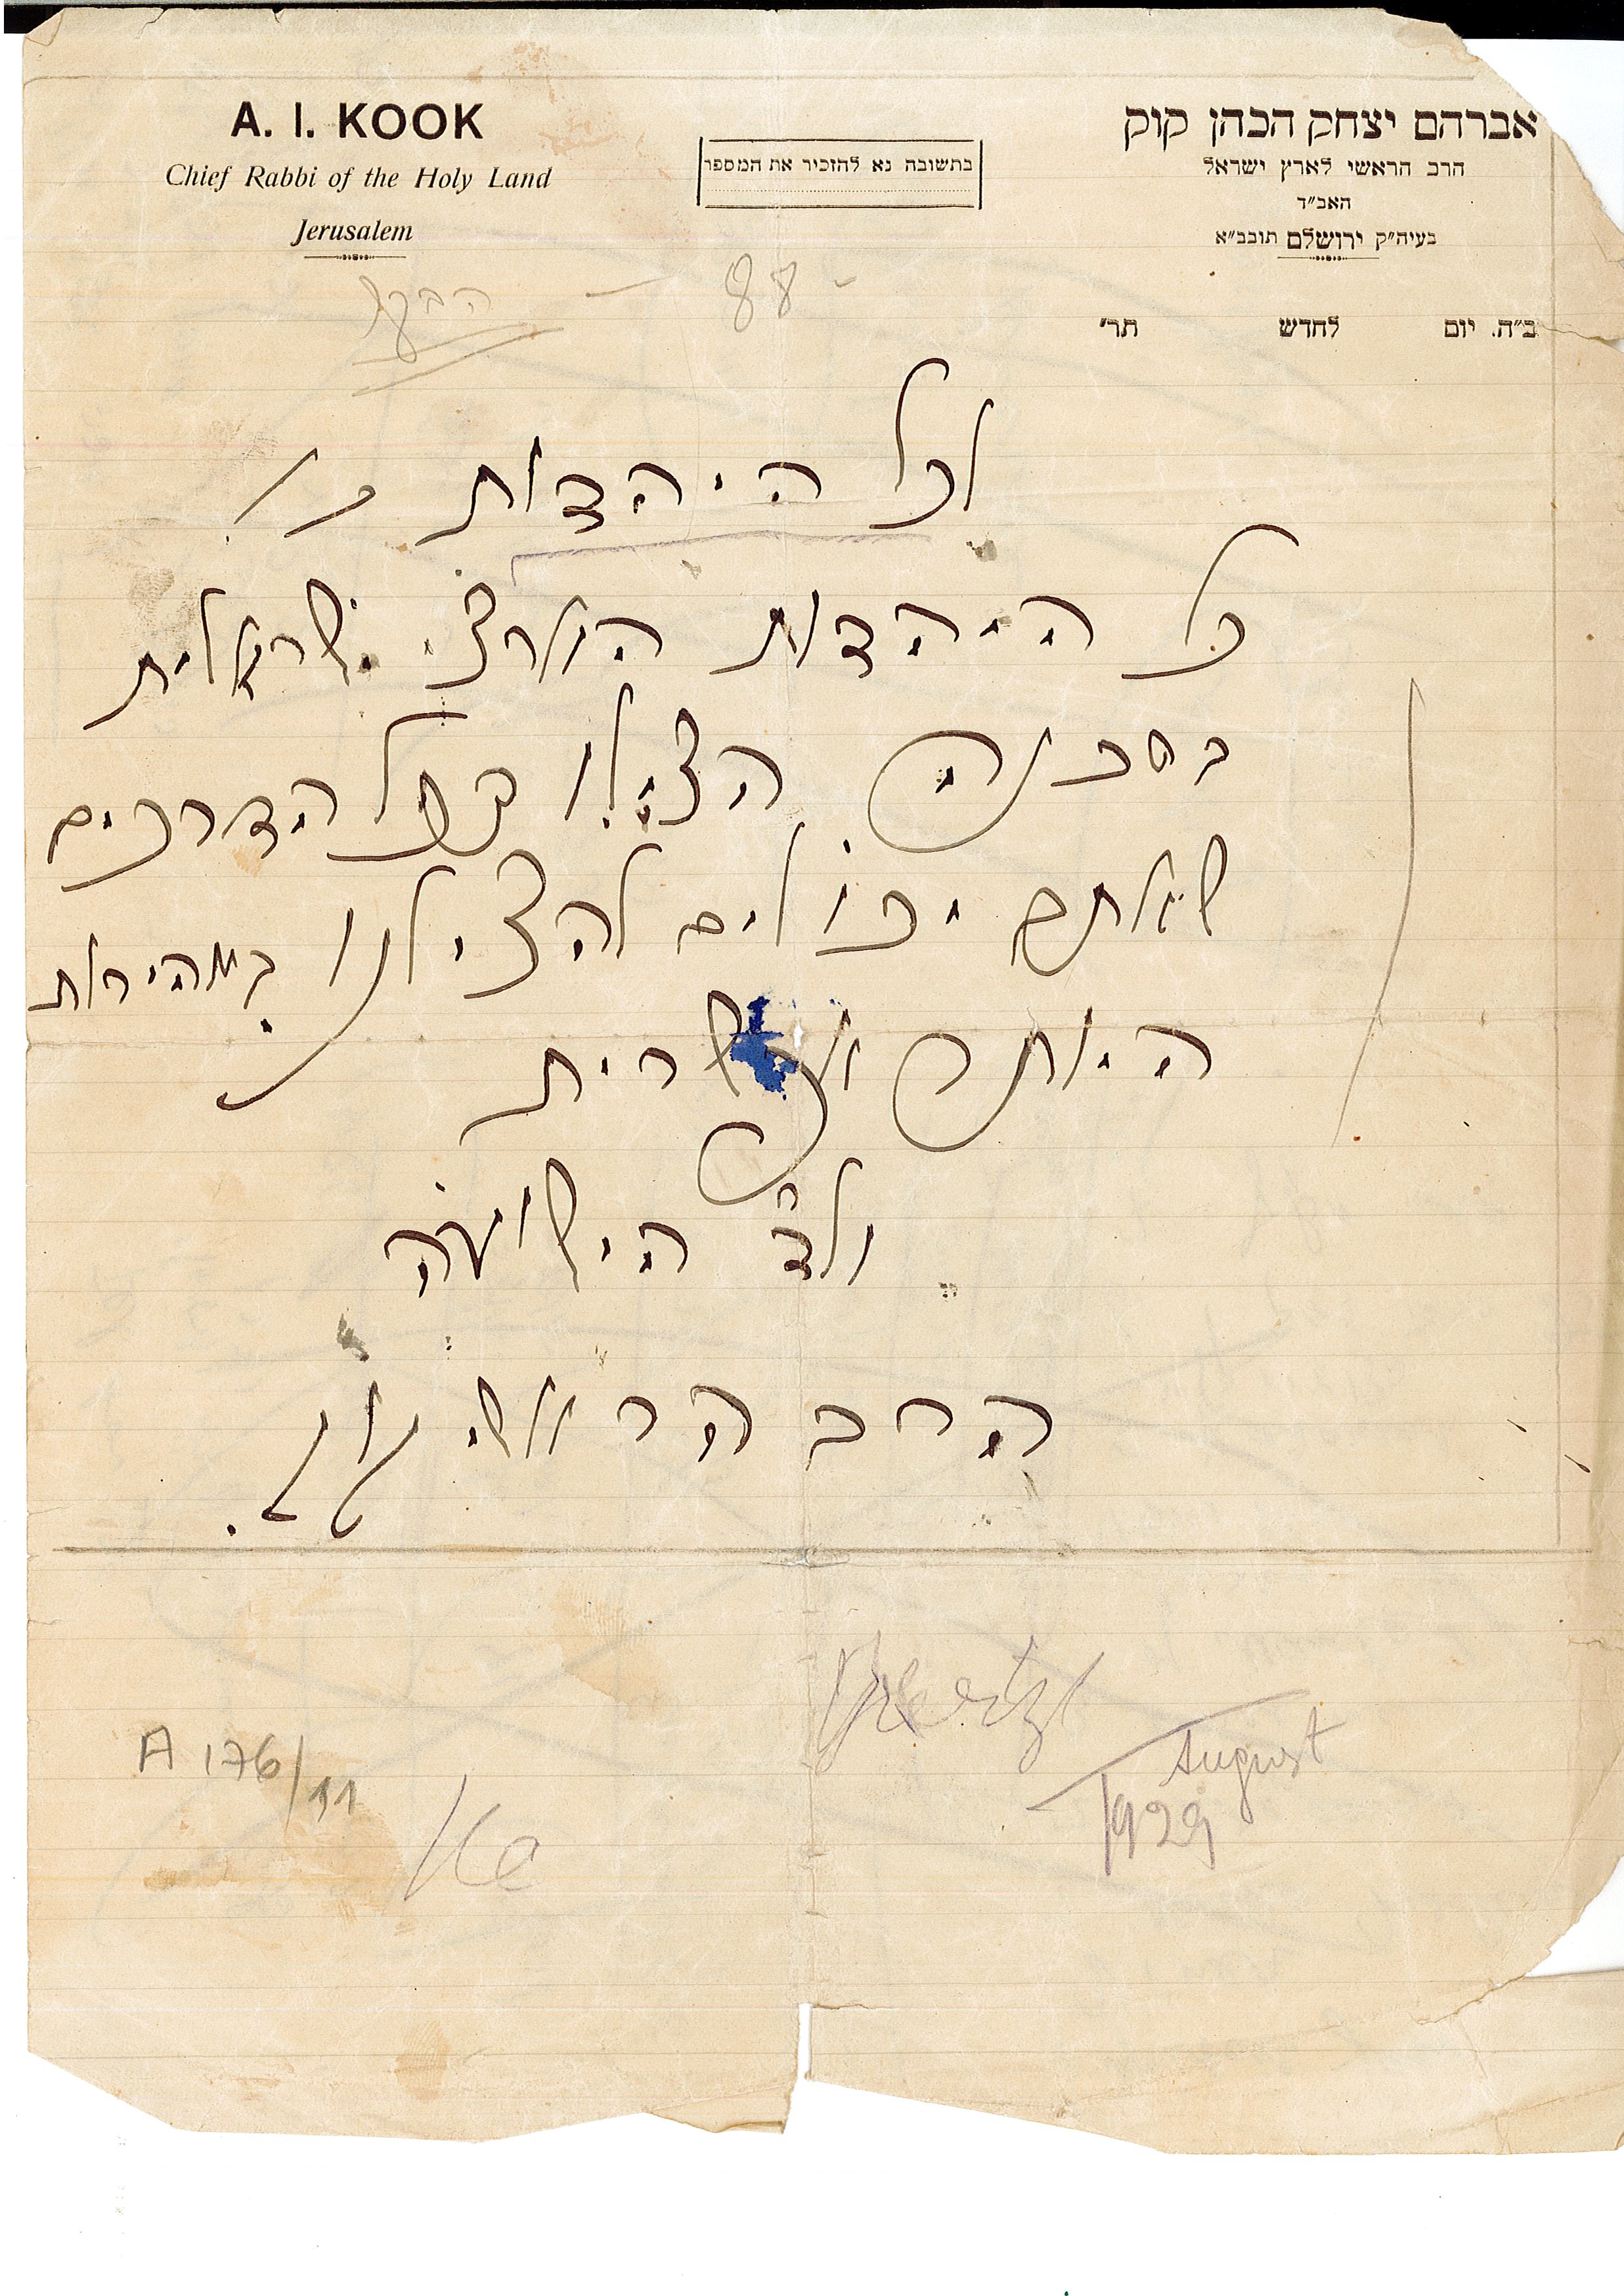 A. I. KOOK
Chief Rabbi of the Holy Land
Jerusalem
בתשובה נא להזכיר את המספר
אברהם יצחק הכהן קוק
הרב הראשי לארץ ישראל
האב״ד
בעיה״ק ירושלם תובב״א
- 88 -
ב״ה. יום לחדש תר׳
לכל היהדות
כל היהדות הארצי ישראלית
בסכנה הצילו בכל הדרכים
שאתם יכולים להצילנו במהירות
היותר אפשרית
ולד' הישועה
הרב הראשי קוק.
August
1929
A 176/11